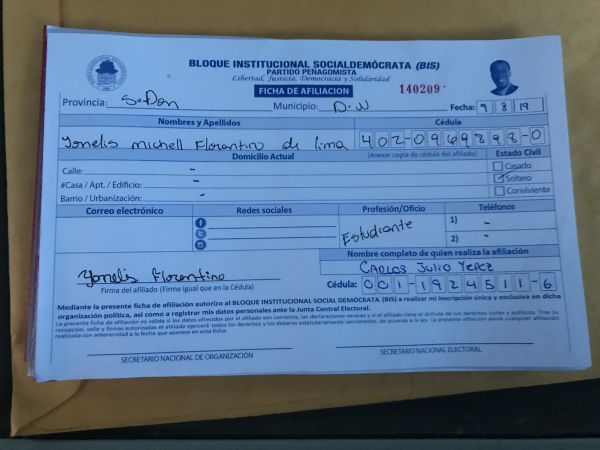 BLOQUE INSTITUCIONAL SOCIALDEMÓCRATA (BIS)
PARTIDO PEÑAGOMISTA
Libertad, Justicia, Democracia y Solidaridad
FICHA DE AFILIACIÓN 140209
Provincia: S. Dgn Municipio: D.N Fecha: 9 8 19
Nombres y Apellidos Cédula
Yonelis Michell Florentino de lima 402-0969898-0
Domicilio Actual (Anexar copia de cédula del afiliado) Estado Civil
Calle: - Casado
#Casa / Apt. / Edificio: - Soltero
Barrio / Urbanización: - Conviviente
Correo electrónico Redes sociales Profesión/Oficio Teléfonos
Estudiante 1) -
2) -
Nombre completo de quien realiza la afiliación
Yonelis Florentino CARLOS JULIO YEPEZ
Firma del afiliado (Firme igual que en la Cédula) Cédula: 001-1924511-6
Mediante la presente ficha de afiliación autorizo al BLOQUE INSTITUCIONAL SOCIAL DEMÓCRATA (BIS) a realizar mi inscripción única y exclusiva en dicha
organización política, así como a registrar mis datos personales ante la Junta Central Electoral.
La presente ficha de afiliación es válida si los datos ofrecidos por el afiliado son correctos, las declaraciones veraces y si el afiliado tiene el disfrute de sus derechos civiles y políticos. Tras su
recepción, sello y firmas autorizadas el afiliado ejercerá todos los derechos y los deberes estatutariamente sancionados, de acuerdo a la ley. La presente afiliación anula cualquier afiliación
realizada con anterioridad a la fecha que aparece en esta ficha.
SECRETARIO NACIONAL DE ORGANIZACIÓN SECRETARIO NACIONAL ELECTORAL